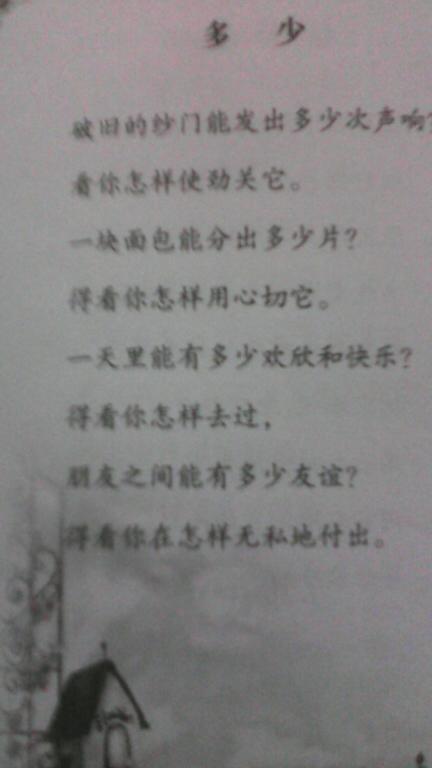 多少
破旧的纱门能发出多少次声响?
看你怎样使劲关它。
一块面包能分出多少片?
得看你怎样用心切它。
一天里能有多少欢欣和快乐?
得看你怎样去过,
朋友之间能有多少友谊?
得看你在怎样无私地付出。